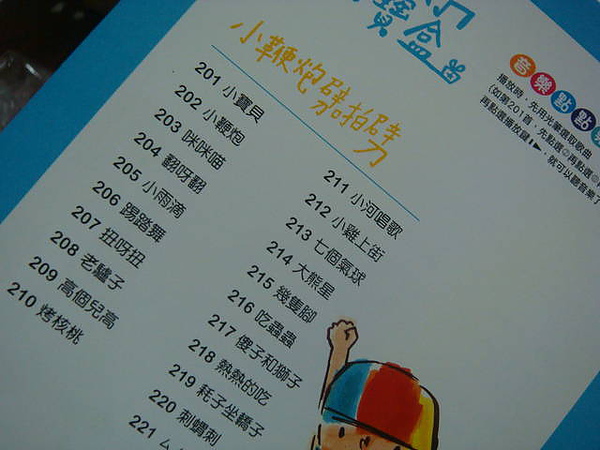 寶盒
小鞭炮劈拍劈
音樂點點
播放時，先用光筆選取歌曲
(如第201首，先點選
再點選播放鍵▶，就可以聽音樂了
201 小寶貝
202 小鞭炮
203 咪咪喵
204 翻呀翻
205 小雨滴
206 踢踏舞
207 扭呀扭
208 老驢子
209 高個兒高
210 烤核桃
211 小河唱歌
212 小雞上街
213 七個氣球
214 大熊星
215 幾隻腳
216 吃蟲蟲
217 傻子和獅子
218 熱熱的吃
219 耗子坐轎子
220 刺蝟刺
221